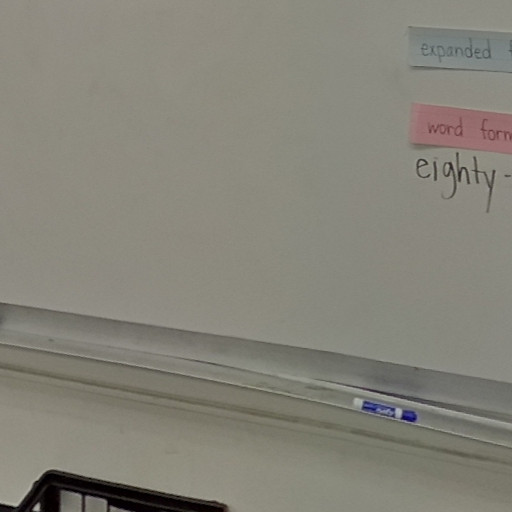 expanded
word form
eighty-